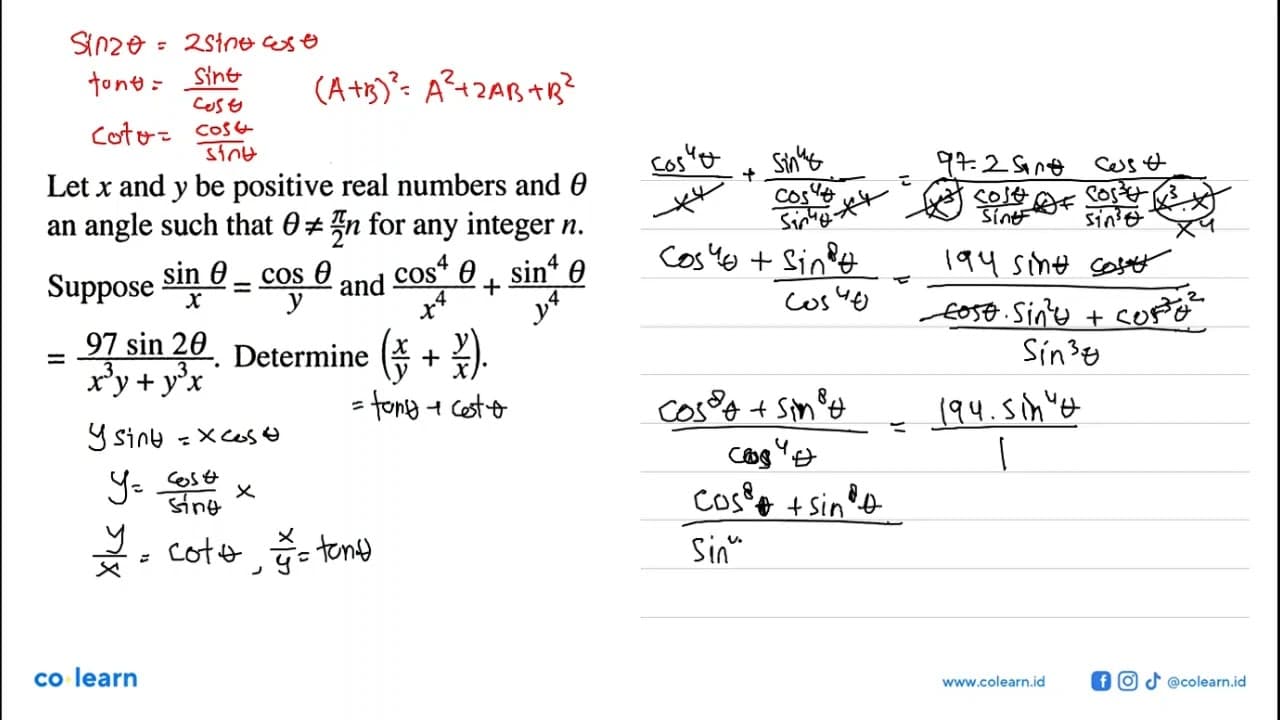 sin2θ = 2sinθ cosθ
tanθ = sinθ/cosθ
(A+B)² = A²+2AB+B²
cotθ = cosθ/sinθ
Let x and y be positive real numbers and θ
an angle such that θ ≠ π/2 n for any integer n.
Suppose sin θ/x = cos θ/y and cos⁴ θ/x⁴ + sin⁴ θ/y⁴
= 97 sin 2θ/(x³y + y³x). Determine (x/y + y/x).
= tanθ + cotθ
y sinθ = x cosθ
y = cosθ/sinθ x
y/x = cotθ, x/y = tanθ
cos⁴θ/x⁴ + sin⁴θ/(cos⁴θ/sin⁴θ x⁴) = 97.2 sinθ cosθ/(x³ cosθ/sinθ x + cos³θ/sin³θ x³.x)
x⁴
cos⁴θ + sin⁸θ/cos⁴θ = 194 sinθ cosθ/((cosθ.sin²θ + cos³θ²)/sin³θ)
(cos⁸θ + sin⁸θ)/cos⁴θ = 194.sin⁴θ/1
cos⁸θ + sin⁸θ
sin⁴
co learn
www.colearn.id
@colearn.id